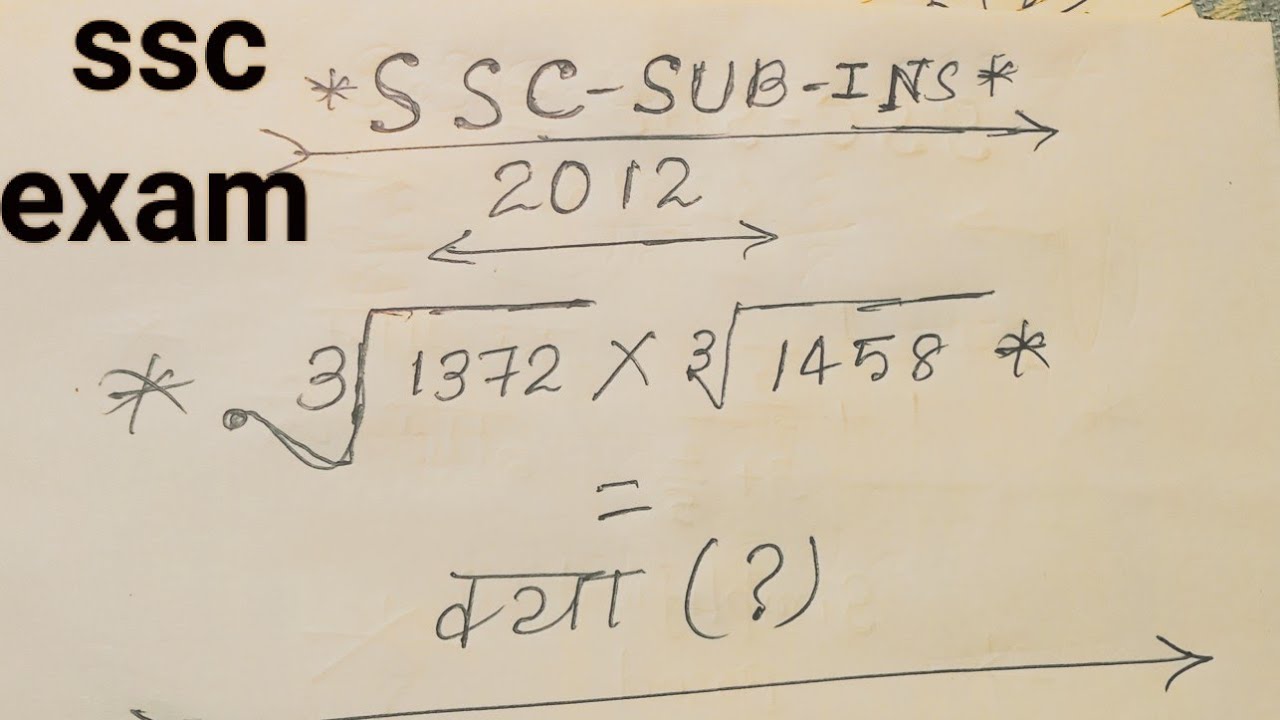 ssc
exam
*SSC-SUB-INS*
2012
* ∛1372 × ∛1458 *
=
क्या (?)